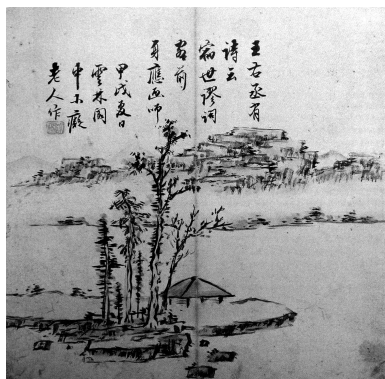 王右丞有
詩云
宿世謬詞
客前
身應画師
甲戌夏日
雲林閣
中癡
老人作